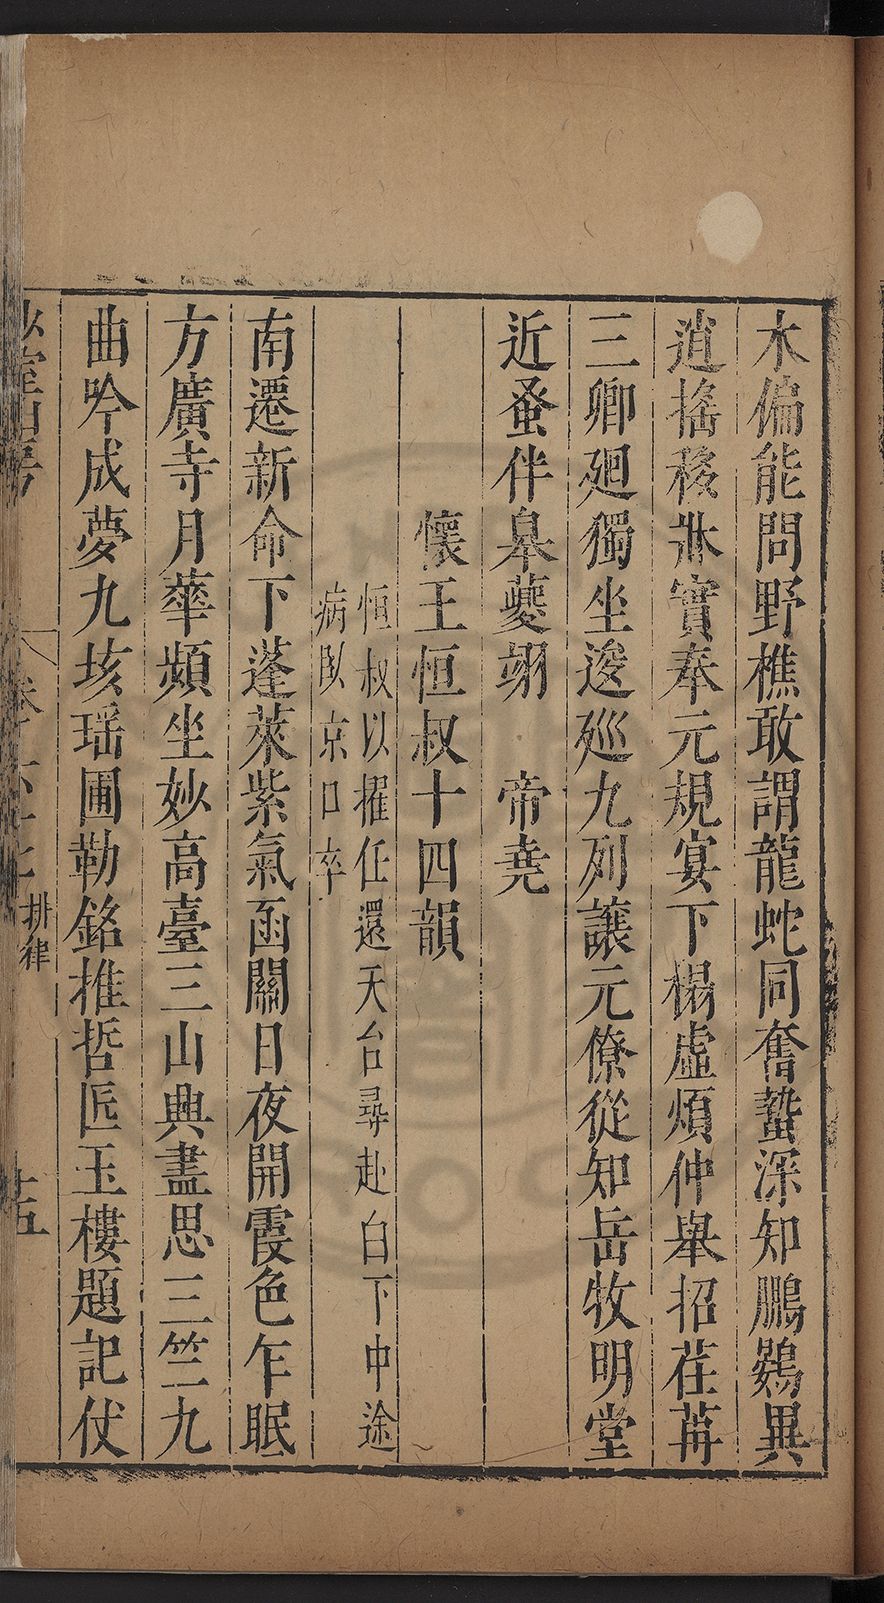 木偏能問野樵敢謂龍蛇同奮蟄深知鵬鷃異
逍搖移牀實奉元規宴下榻虛煩仲舉招荏苒
三卿廻獨坐逡巡九列讓元僚從知岳牧明堂
近蚤伴皋夔翊　帝堯
懷王恒叔十四韻
恒叔以擢任還天台尋赴白下中途
病臥京口卒
南遷新命下蓬萊紫氣函關日夜開霞色乍眠
方廣寺月華頻坐妙高臺三山興盡思三竺九
曲吟成夢九垓瑶圃勒銘推哲匠玉樓題記伏
室山房
卷 排律
十五